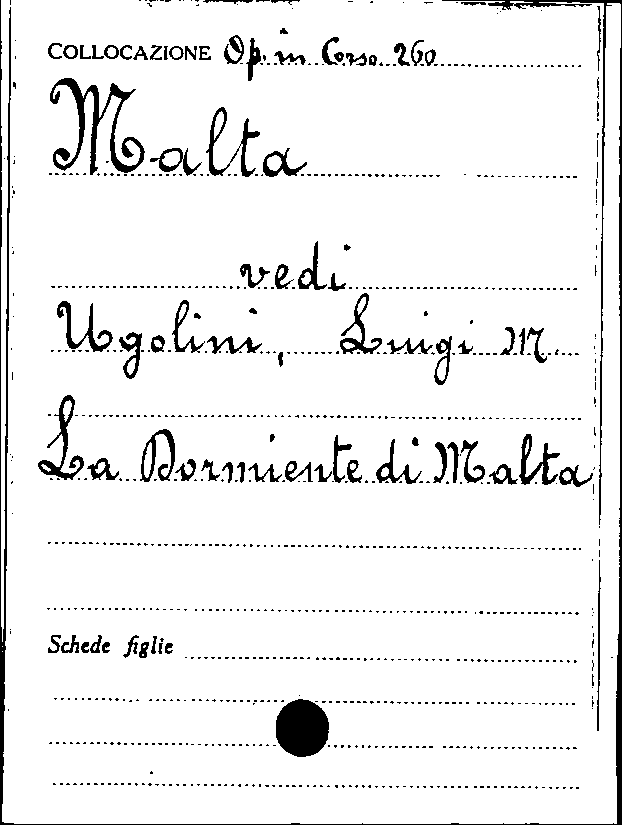 COLLOCAZIONE Op. in Corso. 260
Malta
vedi
Ugolini, Luigi M.
La Dormiente di Malta
Schede figlie